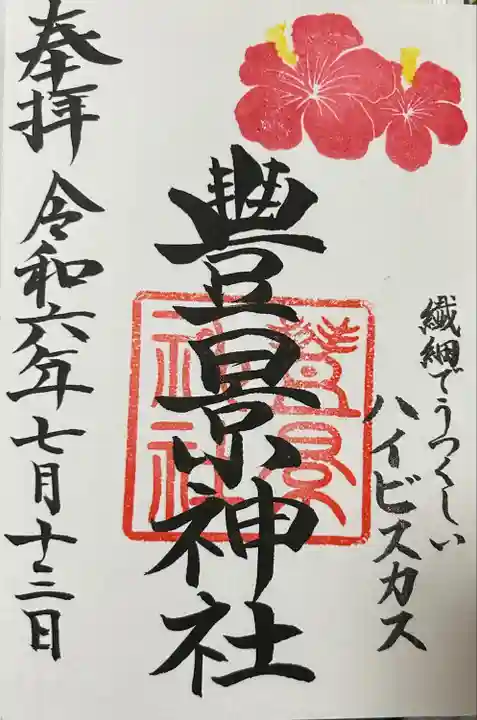 繊細でうつくしい
ハイビスカス
豊景神社
豊景神社
奉拝 令和六年七月十三日